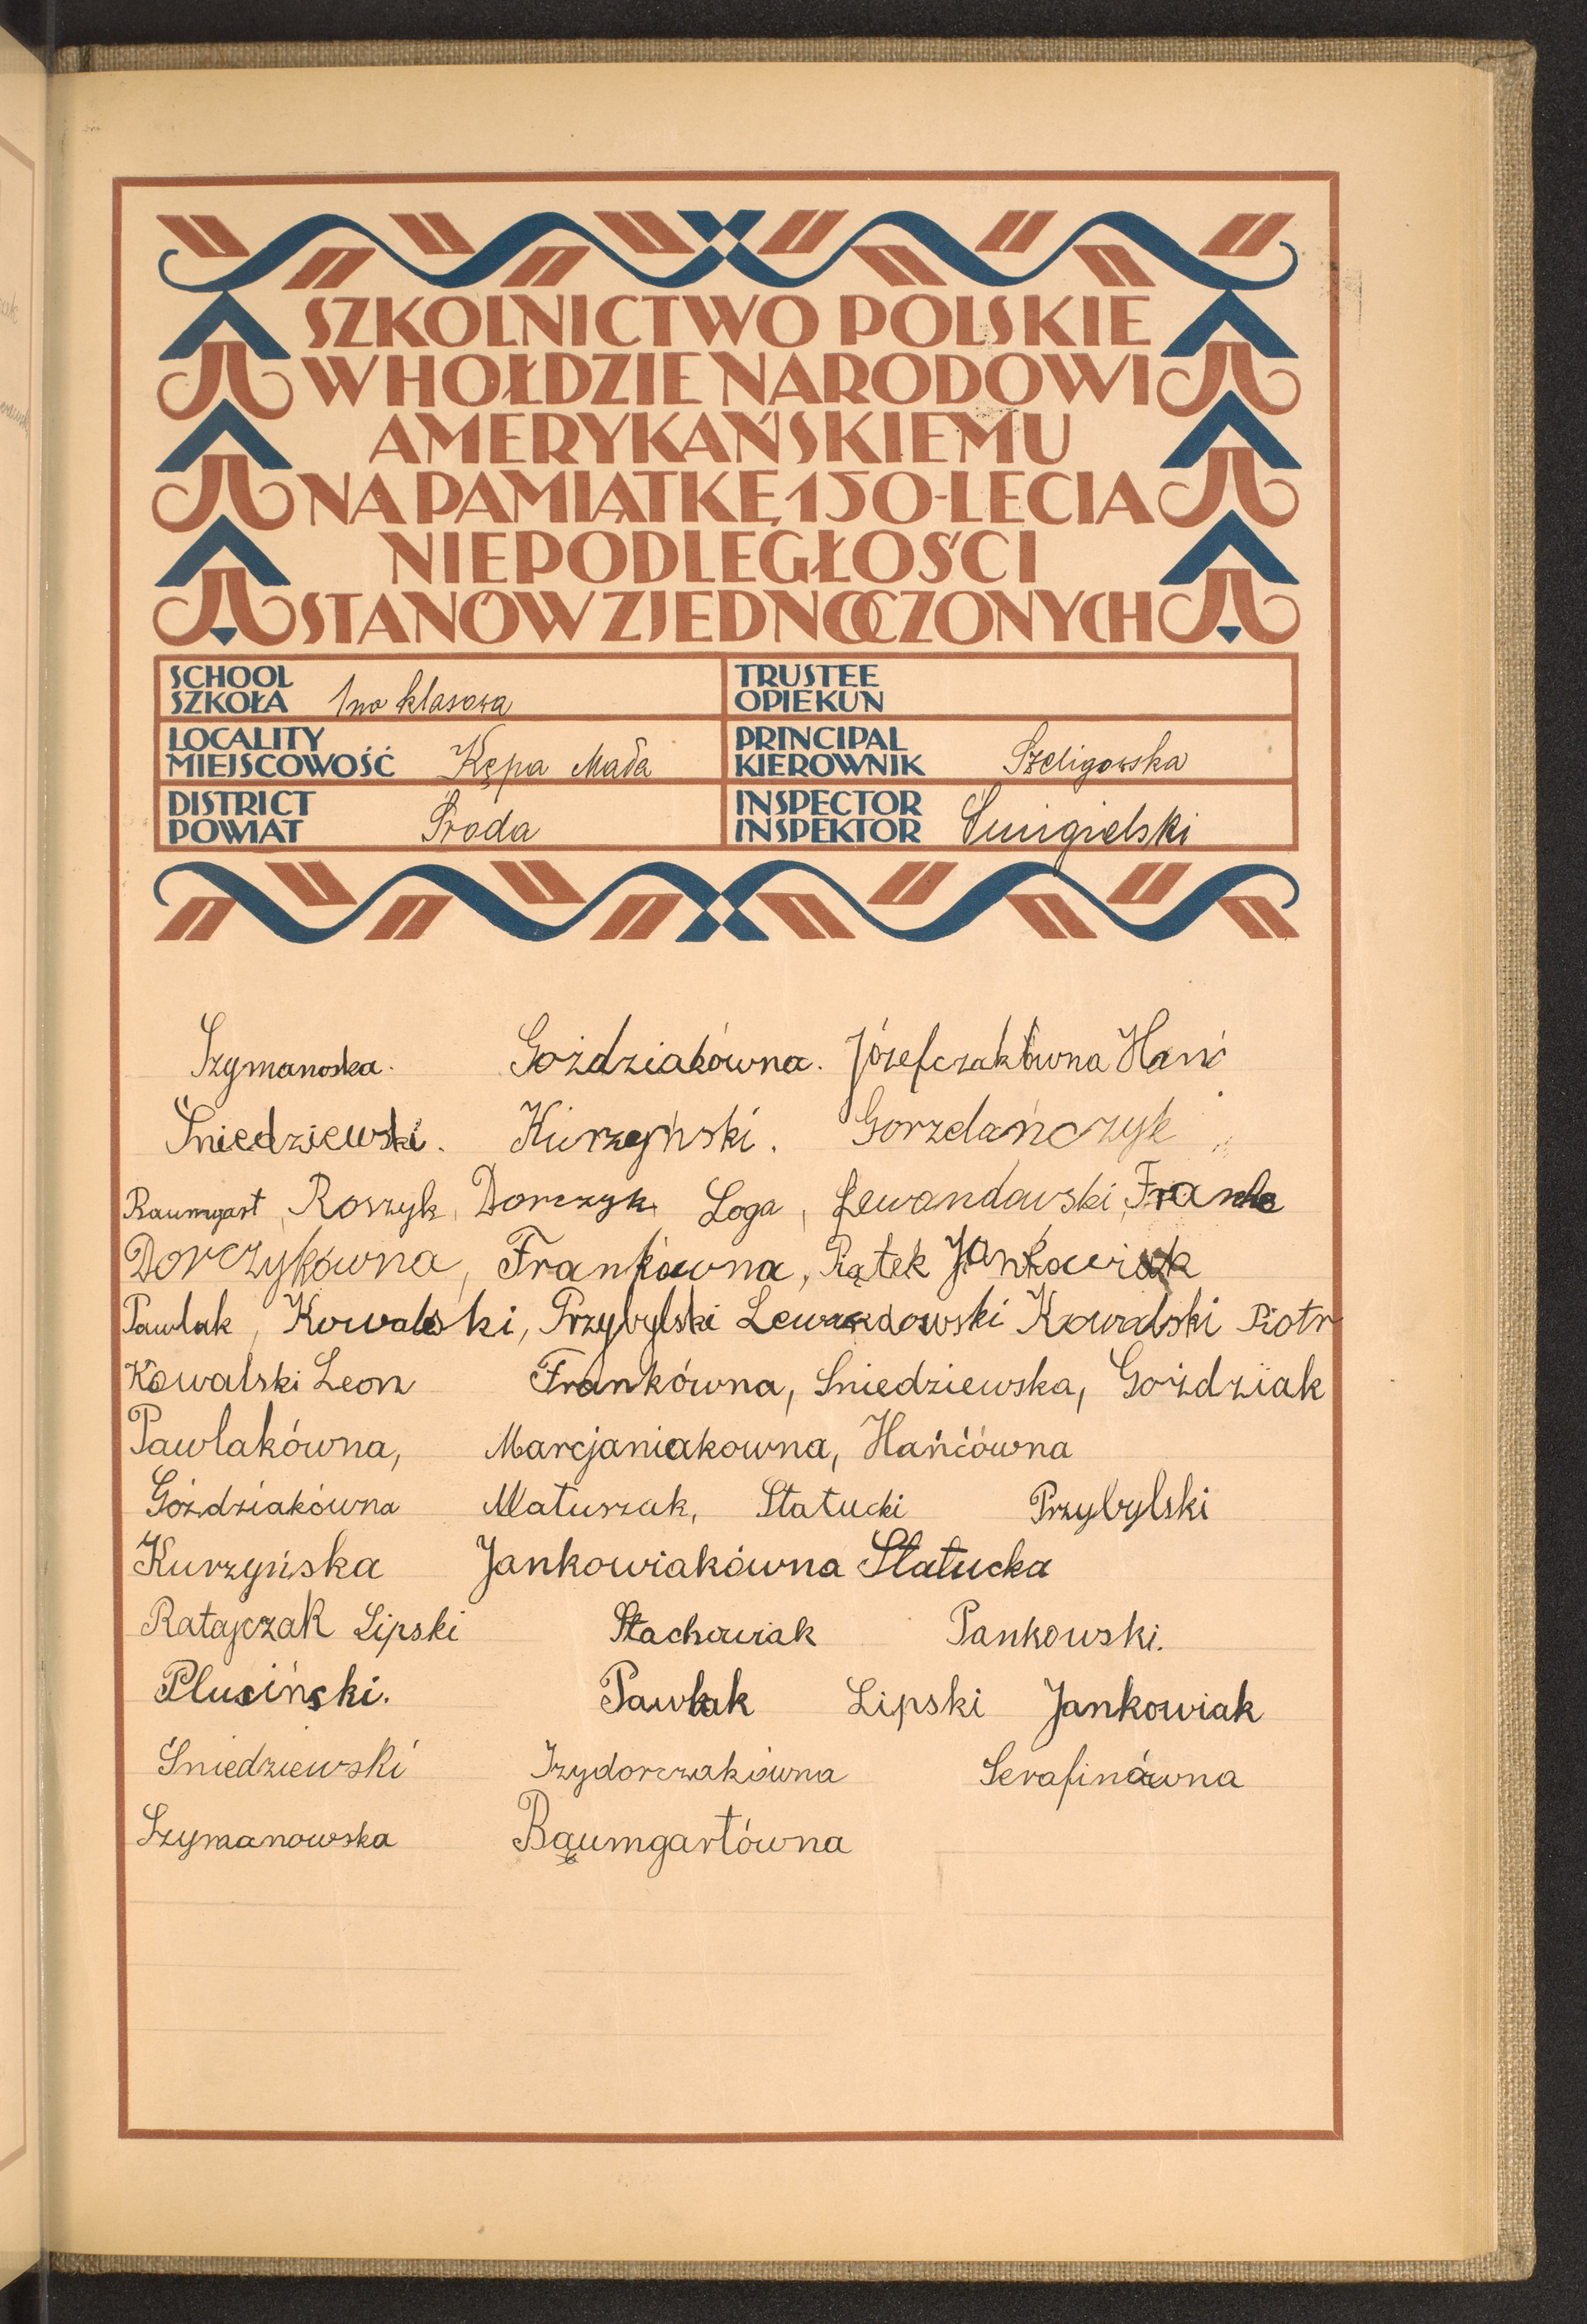 SZKOLNICTWO POLSKIE
W HOŁDZIE NARODOWI
AMERYKAŃSKIEMU
NA PAMIĄTKĘ 150-LECIA
NIEPODLEGŁOŚCI
STANÓW ZJEDNOCZONYCH
SCHOOL
SZKOŁA 1no klasowa
TRUSTEE
OPIEKUN
LOCALITY
MIEJSCOWOŚĆ Kępa Mała
PRINCIPAL
KIEROWNIK Szeligowska
DISTRICT
POWIAT Środa
INSPECTOR
INSPEKTOR Śmigielski
Szymanoska. Goździakówna. Józefczakówna Hańć
Śniedziewski. Kurzyński. Gorzelańczyk
Baumgart, Roszyk, Dorczyk Loga, Lewandowski, Franke
Dorczykówna, Frankówna, Piątek Jankowiak
Pawlak, Kowalski, Przybylski Lewandowski Kowalski Piotr
Kowalski Leon Frankówna, Sniedziewska, Goździak
Pawlakówna, Marcjaniakowna, Hańćówna
Góździakówna Matuszak, Statucki Przybylski
Kurzyńska Jankowiakówna Statucka
Ratajczak Lipski Stachowiak Pankowski.
Plusiński. Pawlak Lipski Jankowiak
Śniedziewski Izydorczakówna Serafinówna
Szymanowska Baumgartówna